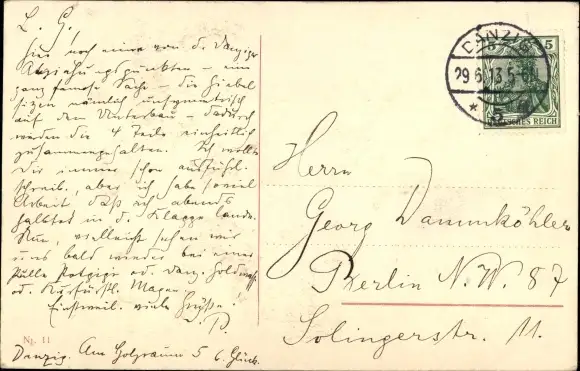 L. G.
hier noch eine von d. Danziger
Anziehungspunkten – eine
ganz famose Sache – die Giebel
sitzen nämlich unsymmetrisch
auf dem Unterbau – dadurch
werden die 4 Teile einheitlich
zusammengehalten. Ich wollte
Dir immer schon ausführl.
schreib., aber ich habe soviel
Arbeit daß ich abends
halbtot in d. Klappe lande.
Nun, vielleicht sehen wir
uns bald wieder bei einer
Pulle od. Danz. Goldwasser
od. Kurfürstl. Magen.
Einstweil. viele Grüße.
P.
Danzig. Am Holzraum 5
Nr. 11
DANZIG
29.6.13. 5-6N
5
DEUTSCHES REICH
Herrn
Georg Dammköhler
Berlin N.W. 87
Solingerstr. 11.